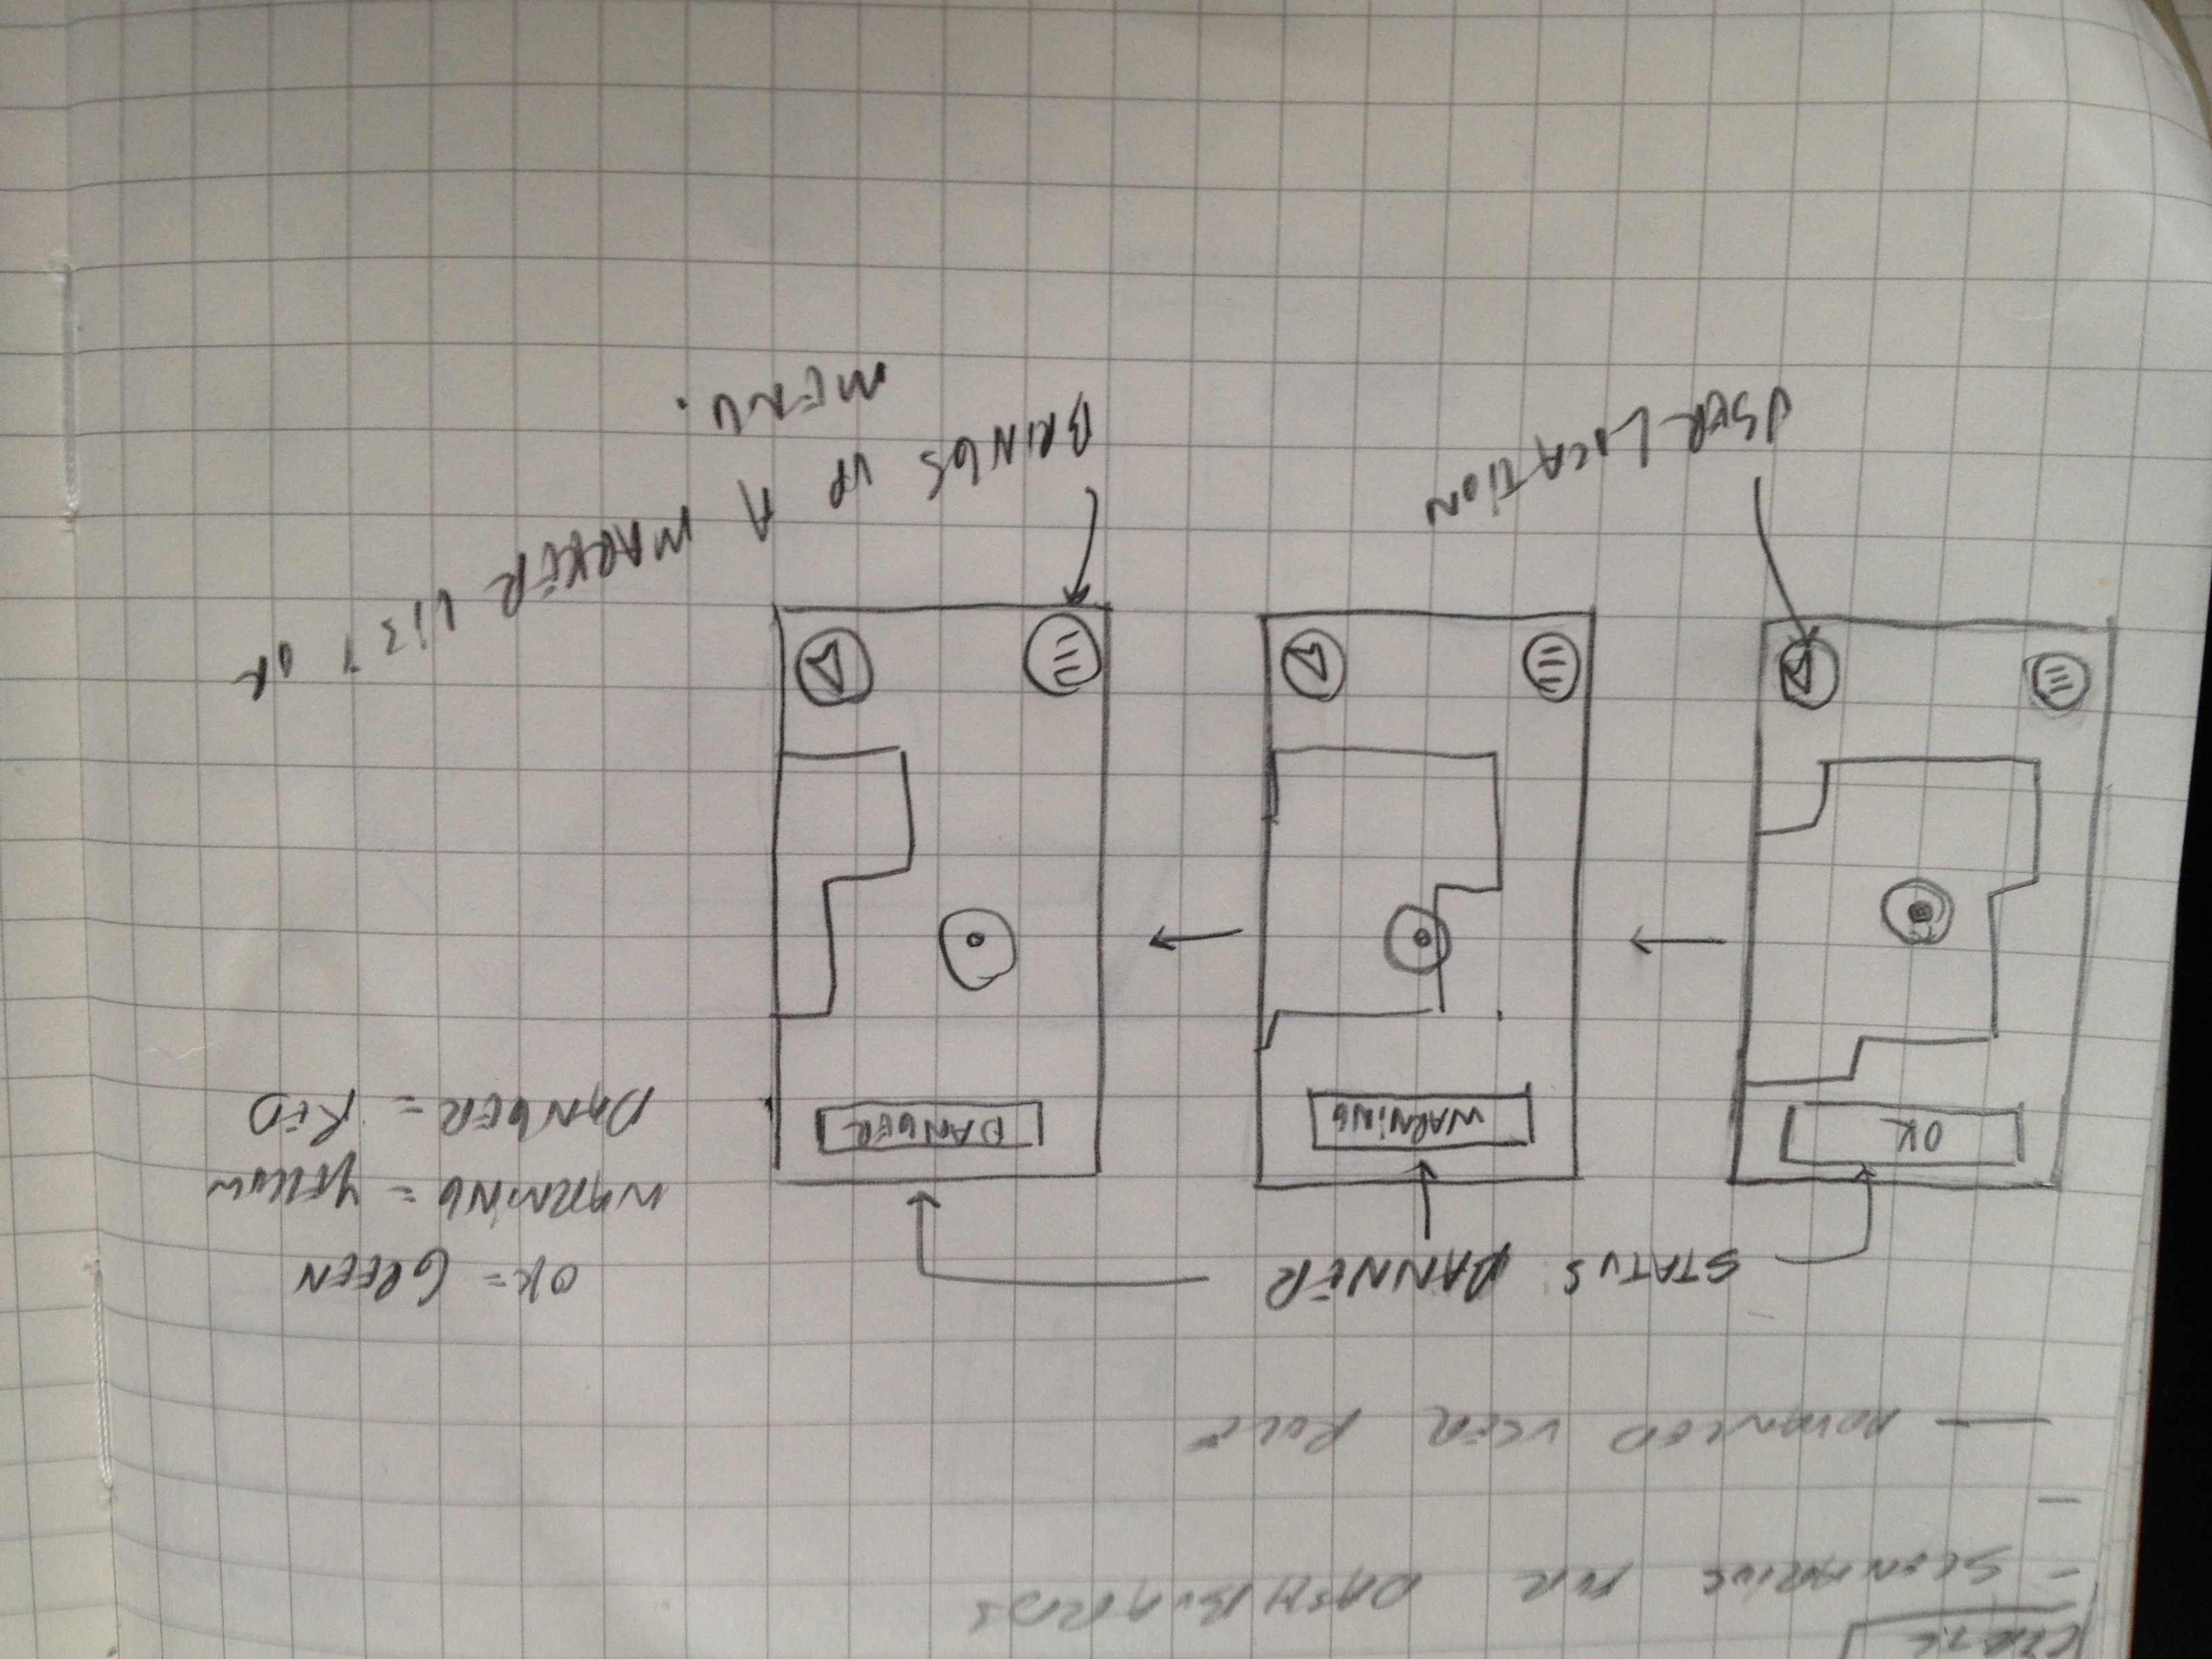 - SCENARIOS FOR DASHBOARDS
—
— ADVANCED USER ROLE
STATUS BANNER
OK = GREEN
WARNING = YELLOW
DANGER = RED
OK
WARNING
DANGER
USER LOCATION
BRINGS UP A MARKER LIST OR
MENU.